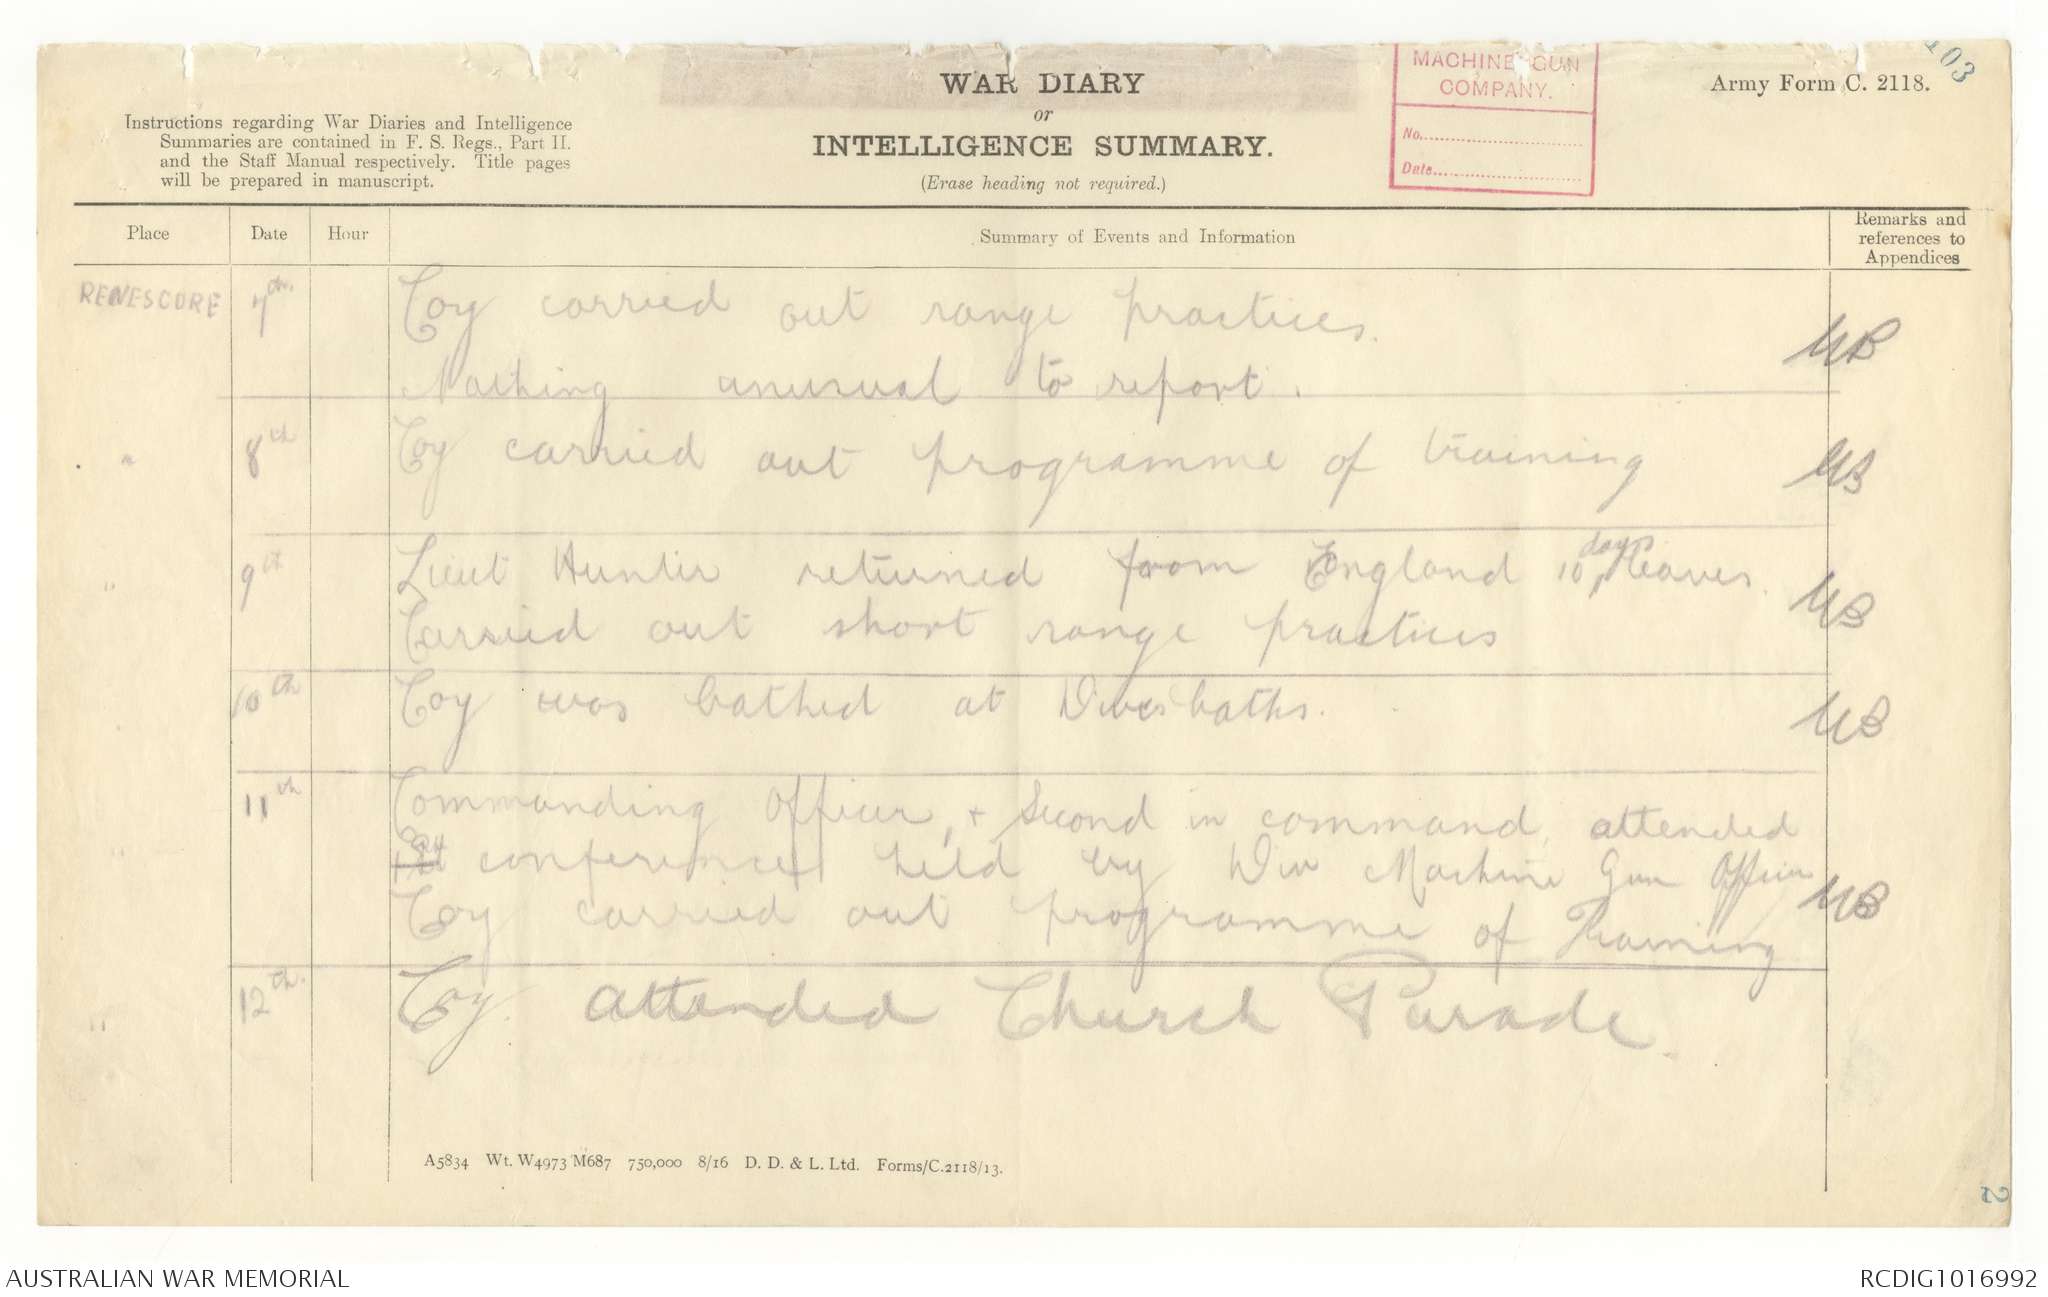 103
MACHINE GUN
COMPANY.
No.
Date
WAR DIARY
or
INTELLIGENCE SUMMARY.
(Erase heading not required.)
Army Form C. 2118.
Instructions regarding War Diaries and Intelligence
Summaries are contained in F. S. Regs., Part II.
and the Staff Manual respectively. Title pages
will be prepared in manuscript.
Place Date Hour Summary of Events and Information Remarks and references to Appendices
RENESCORE 7th. Coy carried out range practices.
Nothing unusual to report.
" 8th Coy carried out programme of training
" 9th Lieut Hunter returned from England 10 days leave.
Carried out short range practices
10th Coy was bathed at Dives baths.
11th Commanding Officer, + Second in command attended
conference held by Div Machine Gun Officer
Coy carried out programme of Training
" 12th. Coy. attended Church Parade.
A5834 Wt. W4973 M687 750,000 8/16 D. D. & L. Ltd. Forms/C.2118/13.
2
AUSTRALIAN WAR MEMORIAL
RCDIG1016992